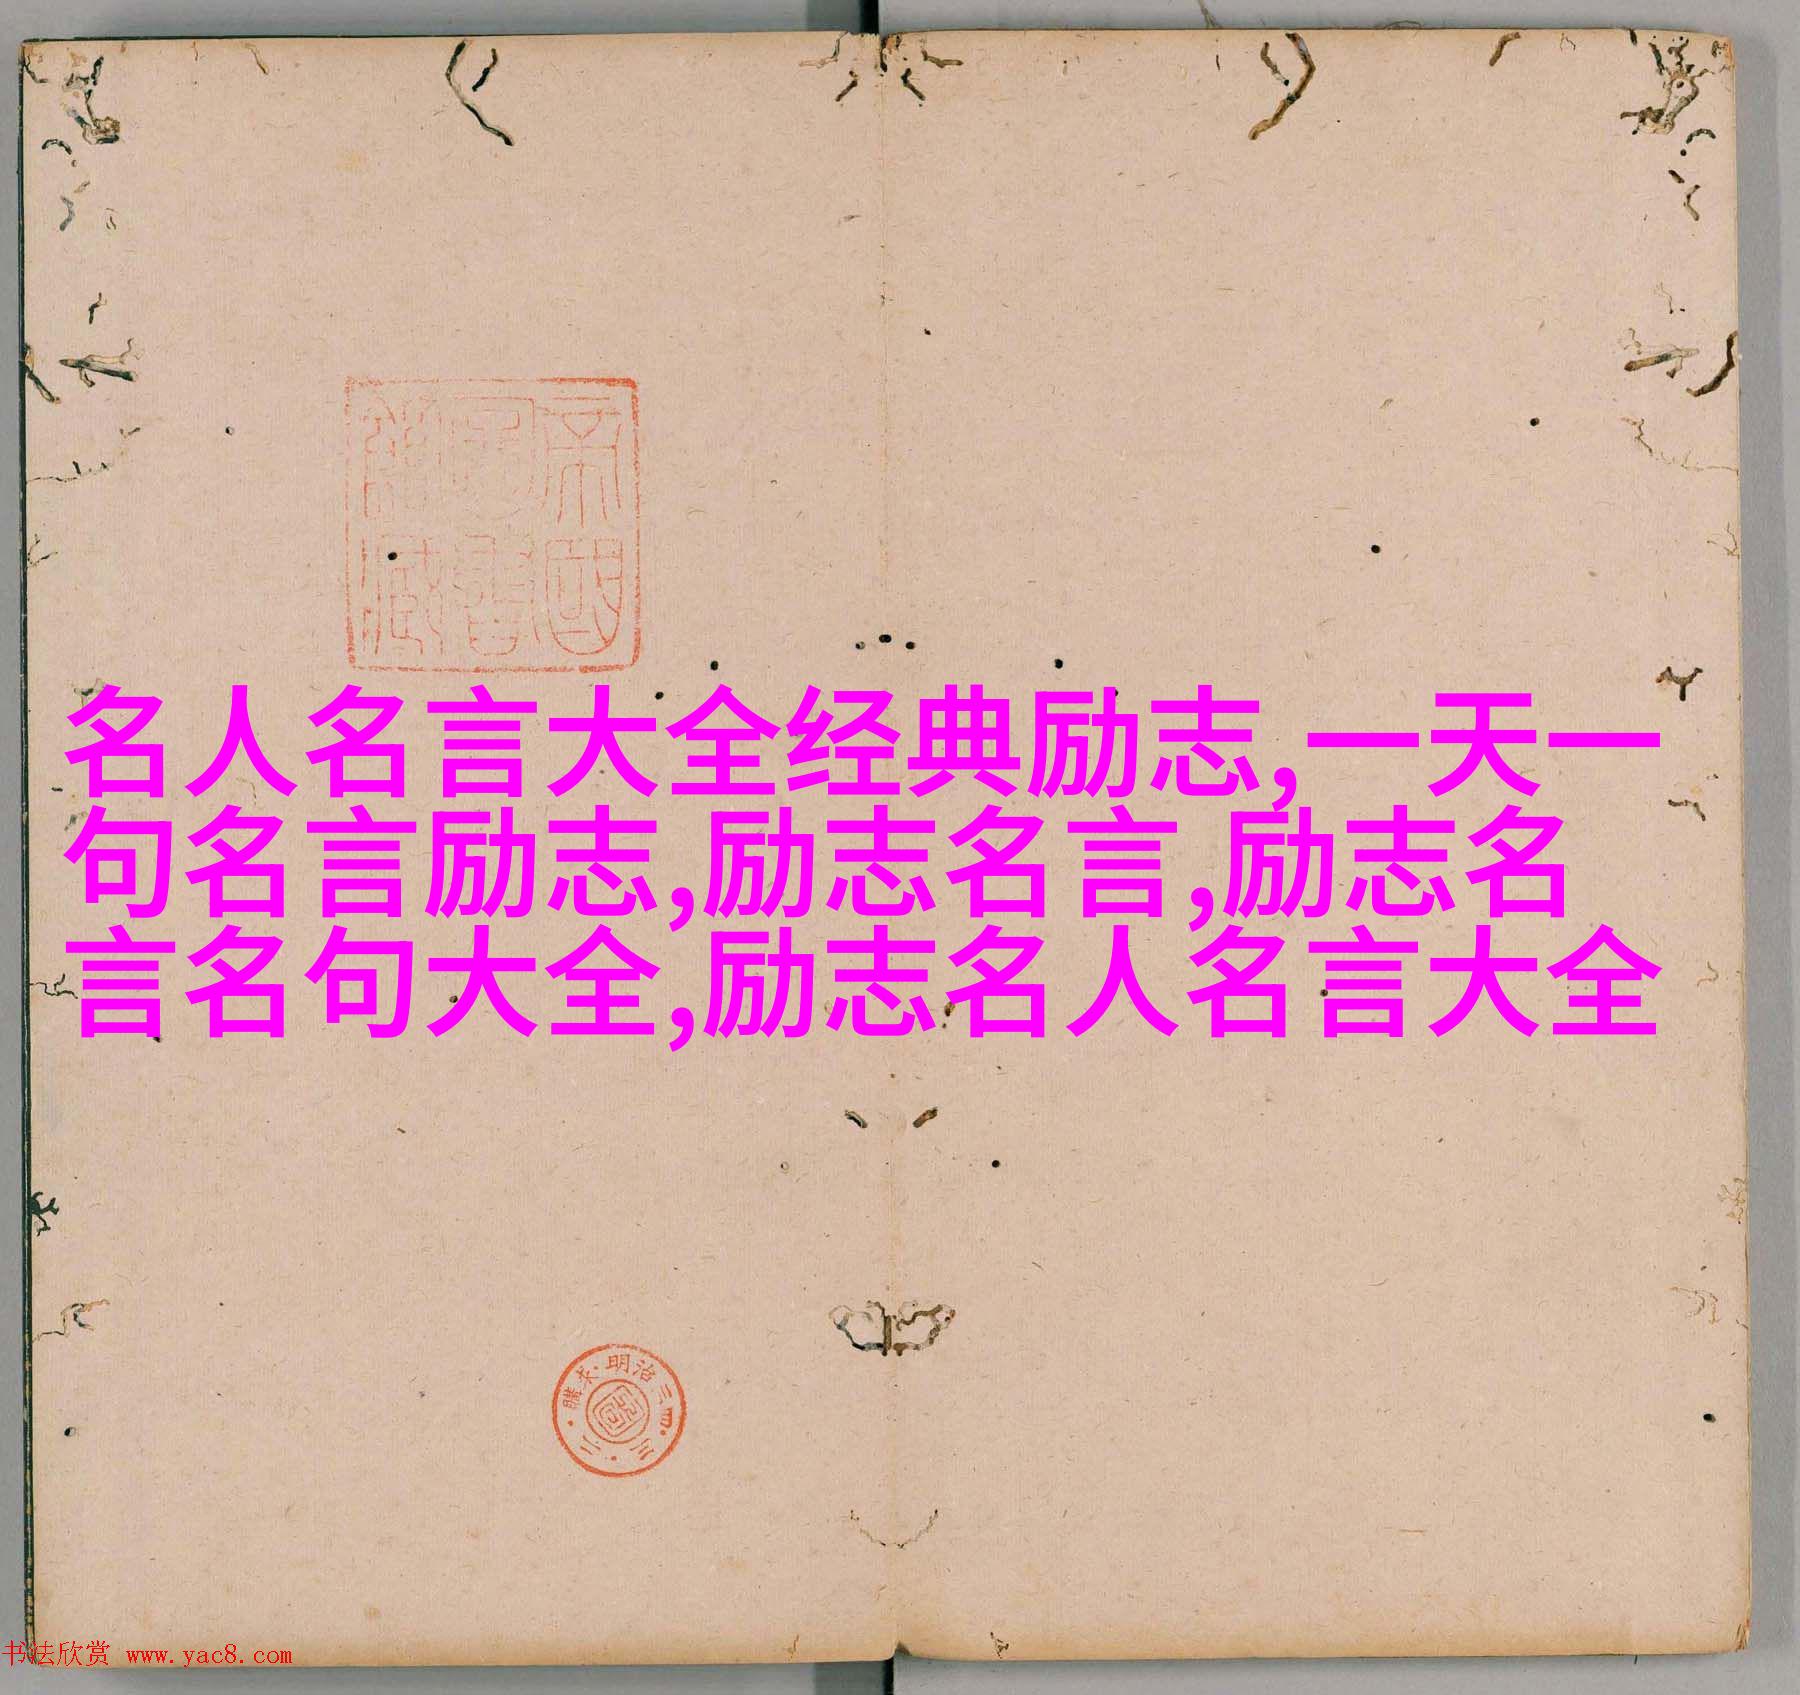 帝国
図書
館蔵
名人名言大全经典励志,一天一
句名言励志,励志名言,励志名
言名句大全,励志名人名言大全
明治三四・三・二・購求
书法欣赏 www.yac8.com